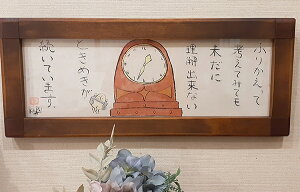 ふりかえって
考えてみても
未だに
理解出来ない
ときめきが
続いています。